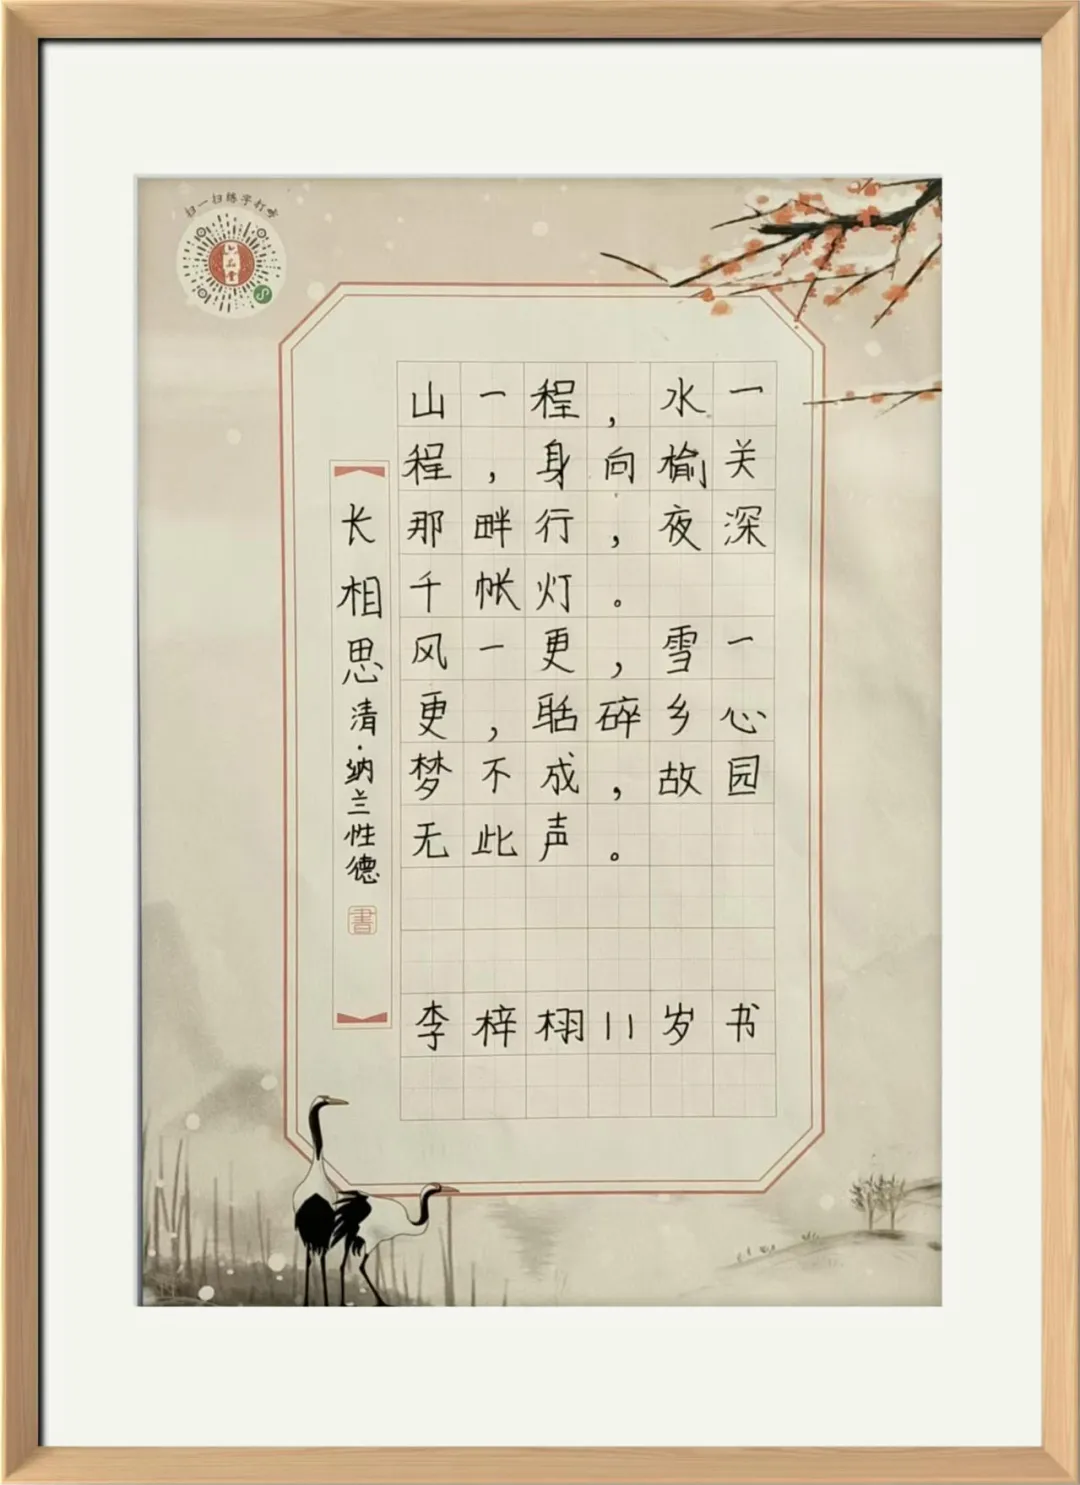 扫一扫练字打卡
六品堂
长相思 清·纳兰性德
書
山一程，水一
程，身向榆关
那畔行，夜深
千帐灯。
风一更，雪一
更，聒碎乡心
梦不成，故园
无此声。
李梓栩11岁书